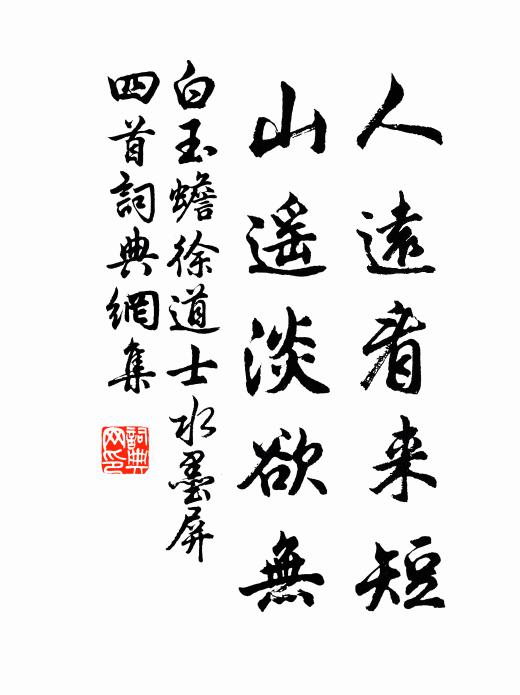 人遠看来短
山遥淡欲無
白玉蟾徐道士水墨屏
四首詞典網集
詞典
网印